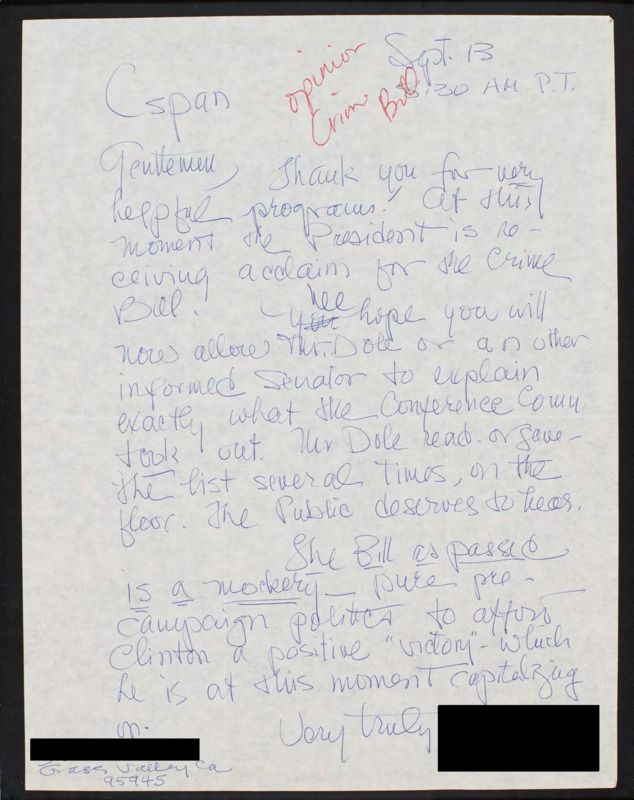 Sept. 13
opinion
Cspan
Crime Bill
8:30 AM P.T.
Gentlemen, Thank you for very
helpful programs! At this
moment the President is re-
ceiving acclaim for the Crime
Bill. – you We hope you will
now allow Mr. Dole or an other
informed Senator to explain
exactly what the Conference Comm
took out. Mr Dole read - or gave -
the list several times, on the
floor. The Public deserves to hear.
The Bill as passed
is a mockery – pure pre-
campaign politics to afford
Clinton a positive "victory" - which
he is at this moment capitalizing
on.
Very truly
Grass Valley Ca
95945